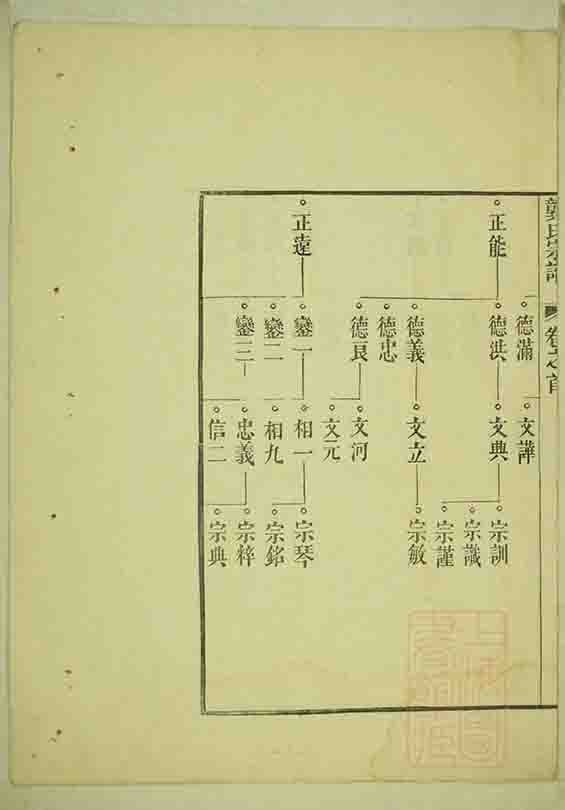 郭氏宗譜
卷之首
正能
正遠
德滿
德洪
德義
德忠
德良
鑾一
鑾二
鑾三
文譁
文典
文立
文河
文元
相一
相九
忠義
信二
宗訓
宗識
宗謹
宗敏
宗琴
宗銘
宗梓
宗典